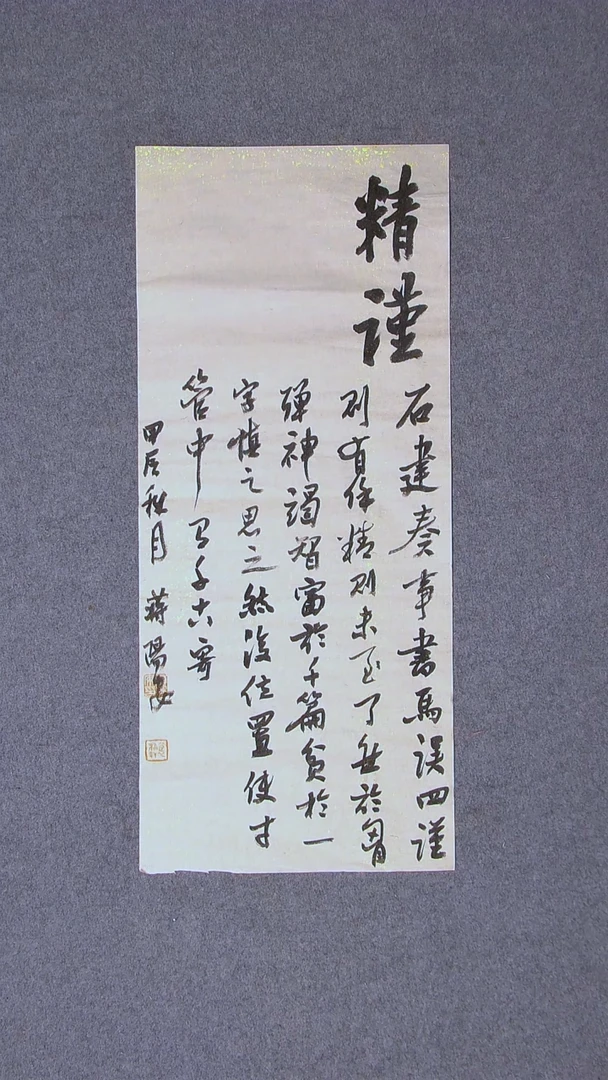 精謹
石建奏事書馬误四謹
則有餘精則未至了然於胷
殫神竭智富於千篇貧於一
字慎之思之然後位置使寸
管中有千古寄
甲辰秋月 蔣陽